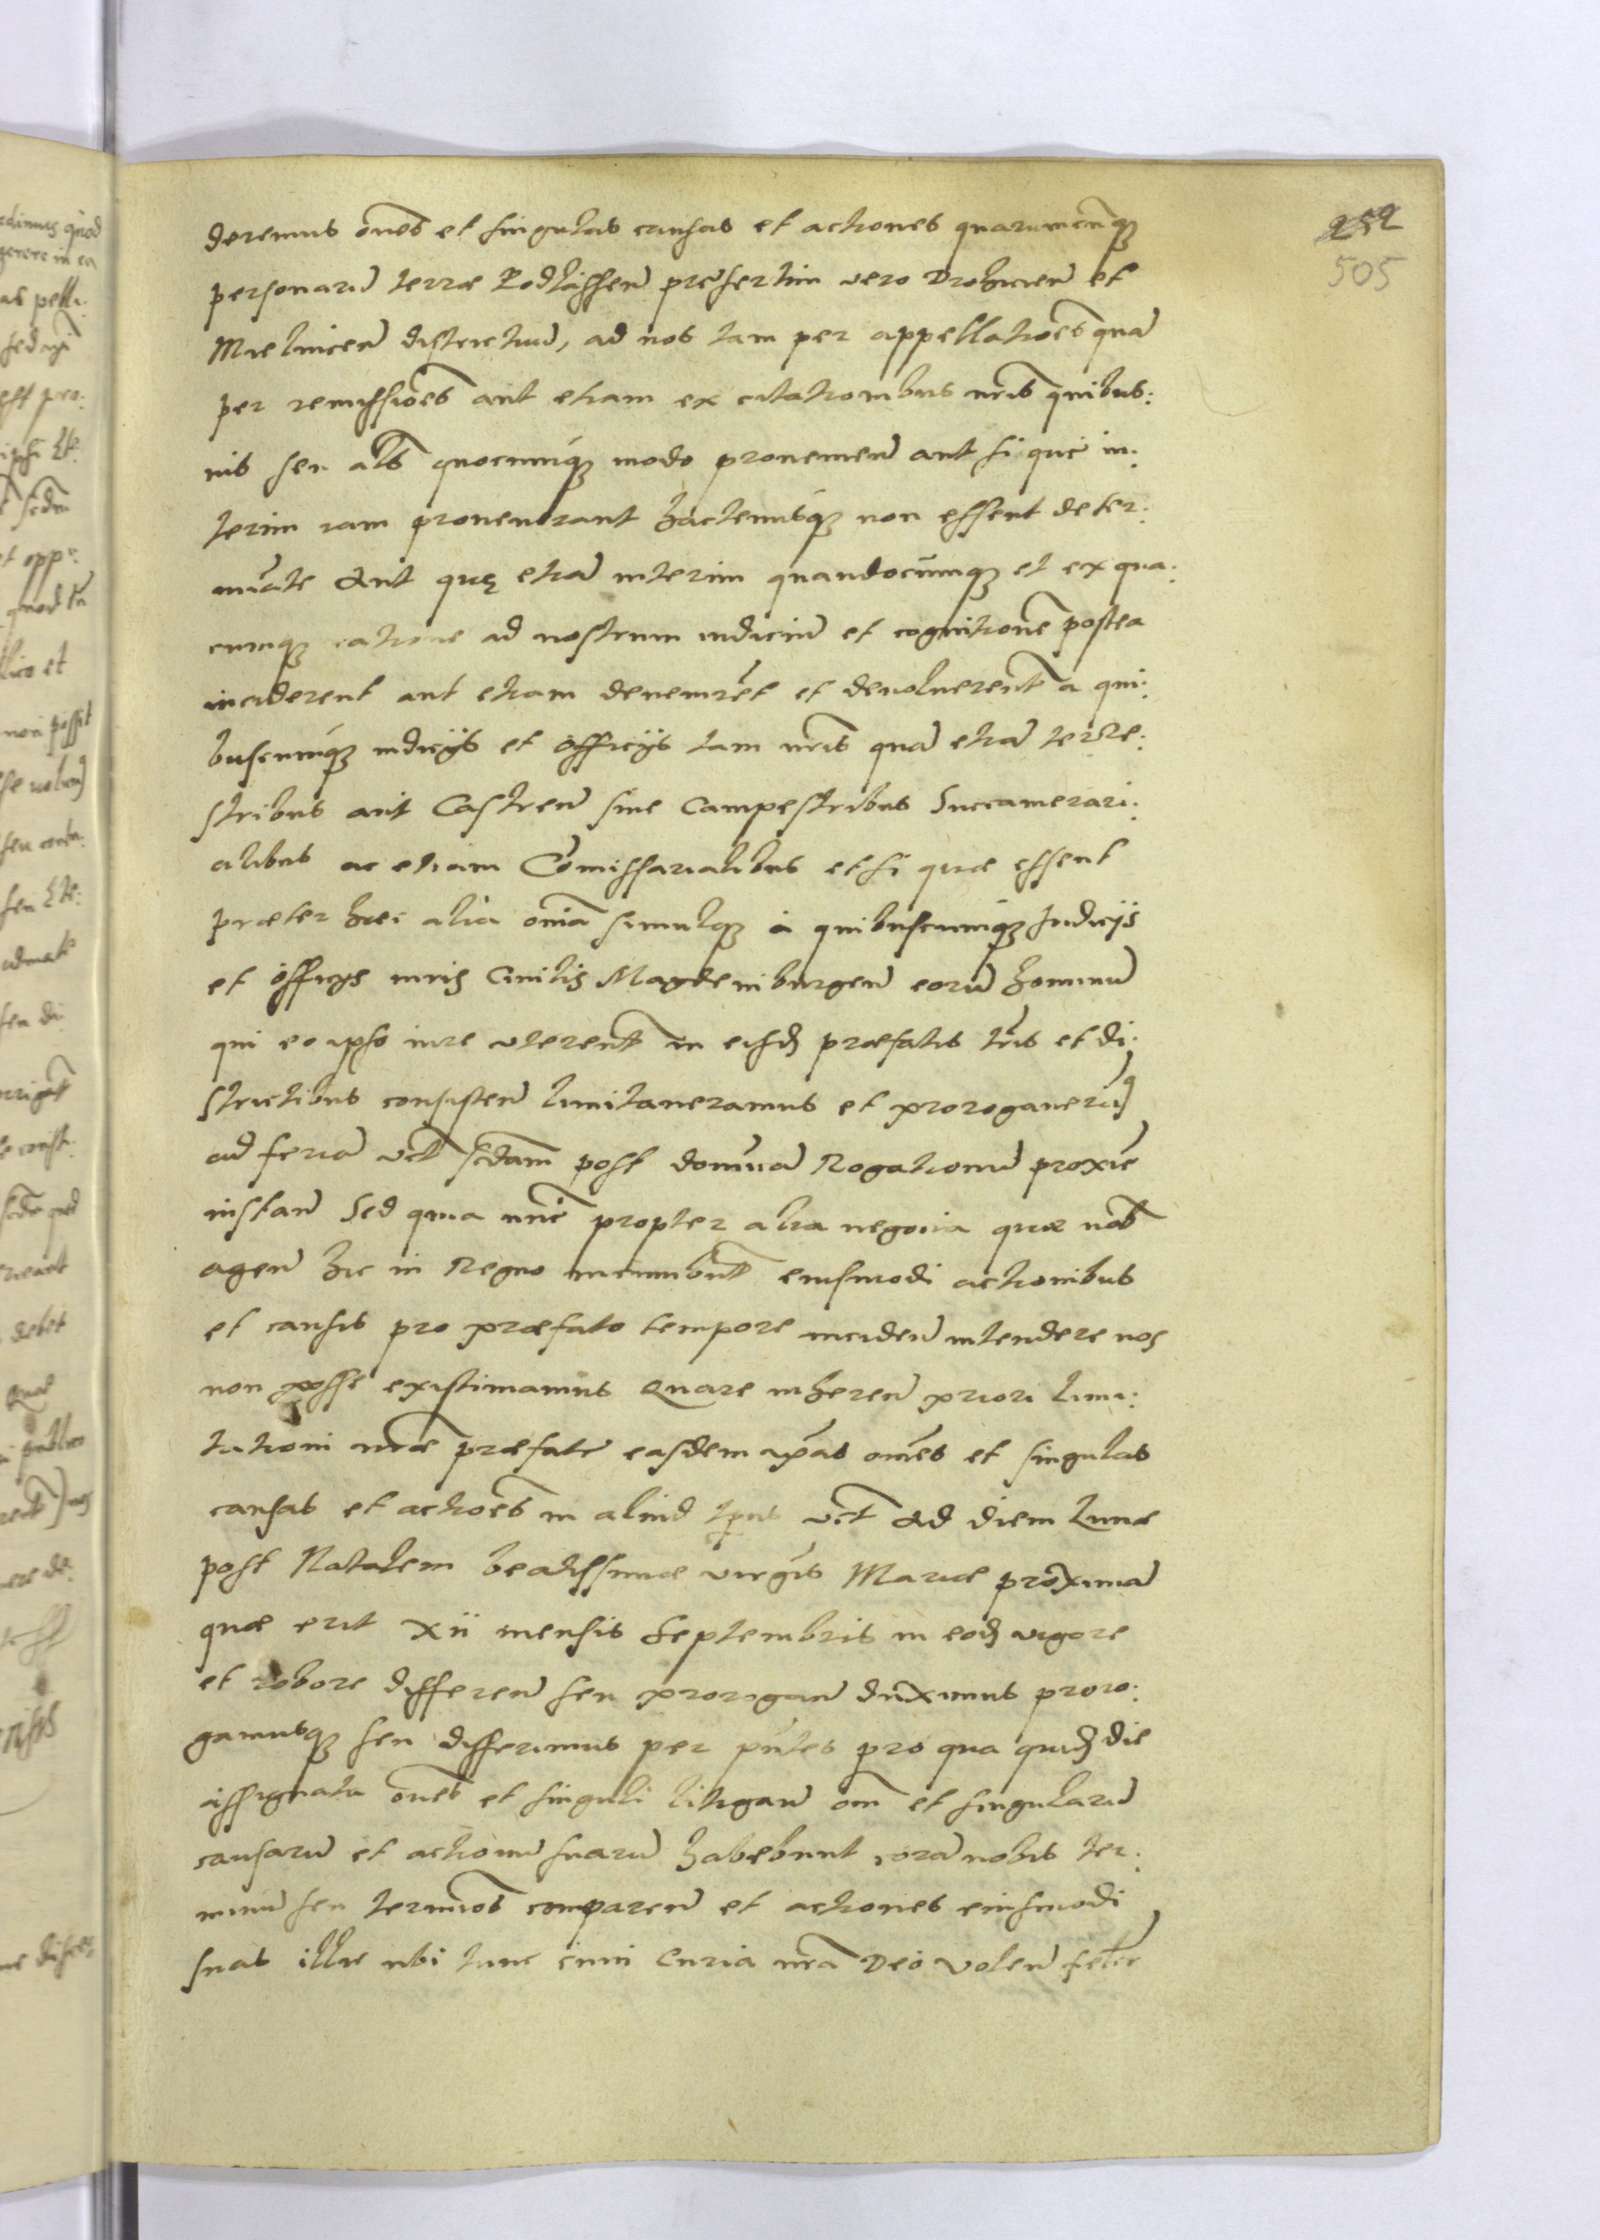 252
505
deremus om̄es et singulas causas et actiones quarumcunq3
personarū terræ Podlassien̄ presertim vero Drohicien̄ et
Mielnicen̄ districtuū, ad nos tam per appellatiōes quā
per remissiōes aut etiam ex citationibus nr̄is quibus:
uis seu als̄ quocunq3 modo prouenien̄ aut si que in:
terim iam prouenerant hactenusq3 non essent deter:
minate Aut quę etiā interim quandocunq3 et ex qua:
cunq3 ratione ad nostrum iudiciū et cognitionē postea
inciderent aut etiam deuenirēt et deuoluerent̄ a qui:
buscunq3 iudicijs et officijs tam nr̄is quā etiā terre:
stribus aut Castren̄ siue Campestribus Succamerari:
alibus ac etiam Com̄issarialibus et si quæ essent
præter hæc alia om̄ia simulq3 a quibuscunq3 Iudicijs
et officijs iuris Ciuilis Magdeniburgen̄ eorū hominū
qui eo ipso iure vterent̄ in eisd3 præfatis tr̄is et di:
strictibus consisten̄ limitaneramus et prorogauerim9
ad feriā vct̄ scd̄am post domīcā Rogationū proximē
instan̄ Sed quia nūc propter alia negocia quæ nob̄
agen̄ hic in Regno incumbūt eiusmodi actionibus
et causis pro præfato tempore inciden̄ intendere nos
non posse existimamus Quare inheren̄ priori limi:
tationi nr̄æ præfate easdem ip̄as om̄es et singulas
causas et actiōes in aliud tp̄us vct̄ Ad diem Lunæ
post Natalem beatissimæ virgīs Mariæ proximā
quæ erit xii mensis Septembris in eod3 vigore
et robore differen̄ seu prorogan̄ duximus proro:
gamusq3 seu differimus per pn̄tes pro qua quid3 die
assignata om̄es et singuli litigan̄ om̄ et singularū
causarū et actionū suarū habebunt corā nobis ter:
minū seu terminos comparen̄ et actiones eiusmodi
suas illic ubi tunc cum Curia nr̄a Deo volen̄ felr̄